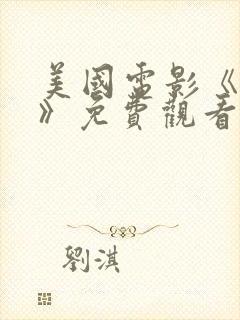 美國電影《
》免費觀看
劉淇